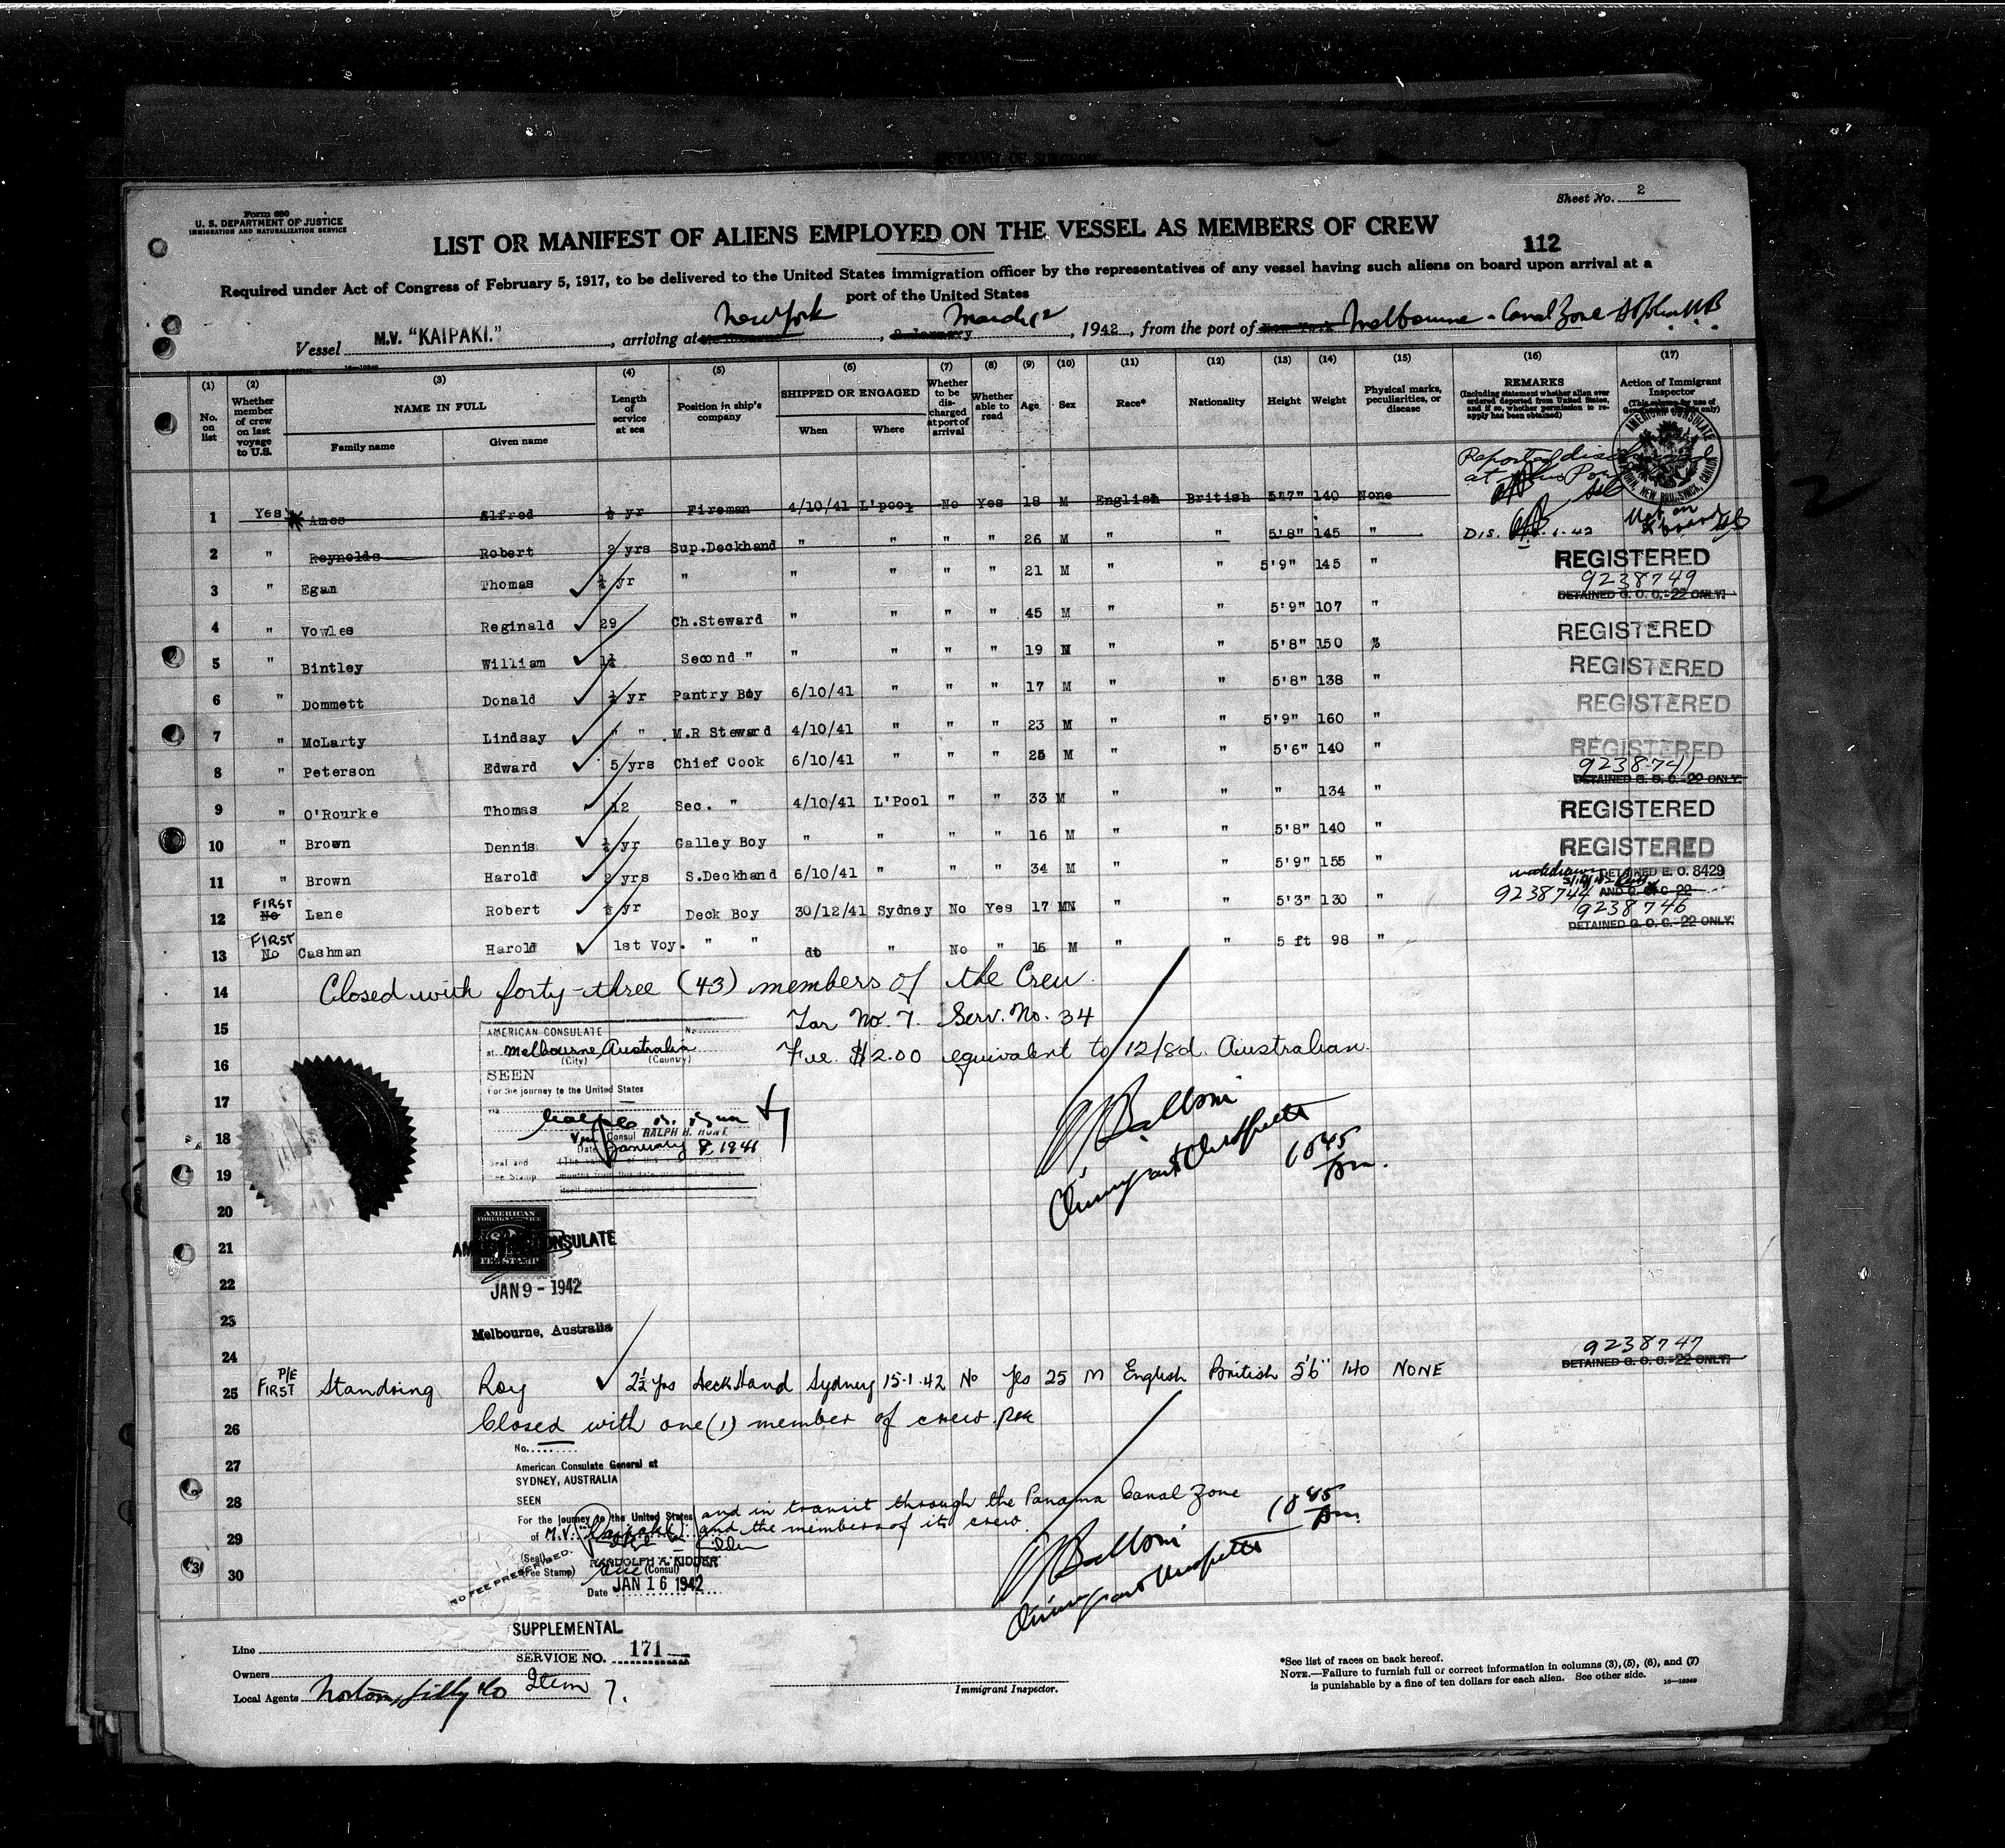 AFFIDAVIT OF SURGEON
Sheet No. 2
Form 680
U. S. DEPARTMENT OF JUSTICE
IMMIGRATION AND NATURALIZATION SERVICE
LIST OR MANIFEST OF ALIENS EMPLOYED ON THE VESSEL AS MEMBERS OF CREW
112
Required under Act of Congress of February 5, 1917, to be delivered to the United States immigration officer by the representatives of any vessel having such aliens on board upon arrival at a
port of the United States
New York March 12
Vessel M.V. "KAIPAKI." , arriving at , 2 January , 1942 , from the port of New York Melbourne - Canal Zone
(1) (2) (3) (4) (5) (6) (7) (8) (9) (10) (11) (12) (13) (14) (15) (16) (17)
No. on list
Whether member of crew on last voyage to U.S.
NAME IN FULL
Family name Given name
Length of service at sea
Position in ship's company
SHIPPED OR ENGAGED
When Where
Whether to be discharged at port of arrival
Whether able to read
Age
Sex
Race*
Nationality
Height
Weight
Physical marks, peculiarities, or disease
REMARKS
(Including statement whether alien ever ordered deported from United States, and if so, whether permission to reapply has been obtained)
Action of Immigrant Inspector
(This column for use of Government officials only)
AMERICAN CONSULATE
JOHN, NEW BRUNSWICK, CANADA
Reported
at
1 Yes Amos Alfred ½ yr Fireman 4/10/41 L'pool No Yes 18 M English British 5'7" 140 None
Not on board
2 " Reynolds Robert 2 yrs Sup.Deckhand " " " " 26 M " " 5'8" 145 " Dis. 1.42
3 " Egan Thomas ½ yr " " " " " 21 M " " 5'9" 145 " REGISTERED
9238749
DETAINED G. O. C.-22 ONLY.
4 " Vowles Reginald 29 Ch.Steward " " " " 45 M " " 5'9" 107 "
REGISTERED
5 " Bintley William 1½ Second " " " " " 19 M " " 5'8" 150
REGISTERED
6 " Dommett Donald ½ yr Pantry Boy 6/10/41 " " " 17 M " " 5'8" 138 "
REGISTERED
7 " McLarty Lindsay " " M.R Steward 4/10/41 " " " 23 M " " 5'9" 160 "
REGISTERED
8 " Peterson Edward 5 yrs Chief Cook 6/10/41 " " " 25 M " " 5'6" 140 "
9238741
DETAINED G. O. C.-22 ONLY.
9 " O'Rourke Thomas 12 Sec. " 4/10/41 L'Pool " " 33 M " " " 134 "
REGISTERED
10 " Brown Dennis ½ yr Galley Boy " " " " 16 M " " 5'8" 140 "
REGISTERED
11 " Brown Harold 2 yrs S.Deckhand 6/10/41 " " " 34 M " " 5'9" 155 "
DETAINED E. O. 8429
AND G. O. C-22
9238744
12 FIRST No Lane Robert ½ yr Deck Boy 30/12/41 Sydney No Yes 17 M " " 5'3" 130 "
9238746
DETAINED G. O. C.-22 ONLY.
13 FIRST No Cashman Harold 1st Voy. " " do " No " 16 M " " 5 ft 98 "
14 Closed with forty-three (43) members of the Crew.
15 Tar No. 7. Serv. No. 34
AMERICAN CONSULATE N
at Melbourne, Australia
(City) (Country)
16 Fee $2.00 equivalent to 12/8d. Australian.
SEEN
For the journey to the United States
17
via
18
Consul RALPH H. HUNT
Date January 8, 1941
19
Seal and
Fee Stamp
Immigrant Inspector
10 45 pm.
20
AMERICAN
FOREIGN SERVICE
FEE STAMP
AMERICAN CONSULATE
21
22
JAN 9 - 1942
23
Melbourne, Australia
24
9238747
DETAINED G. O. C.-22 ONLY.
25 P/E FIRST Standring Roy 2½ yrs Deck Hand Sydney 15-1-42 No Yes 25 M English British 5'6" 140 NONE
26 Closed with one (1) member of crew.
No.
27
American Consulate General at
SYDNEY, AUSTRALIA
28
SEEN
For the journey to the United States and in transit through the Panama Canal Zone
29
of M.V. "Kaipaki" and the members of its crew.
10 45 pm
NO FEE PRESCRIBED.
(Seal)
RANDOLPH A. KIDDER
(Fee Stamp) (Consul)
30
Date JAN 16 1942
Immigrant Inspector
SUPPLEMENTAL
Line
SERVICE NO. 171
Owners
Item 7.
Local Agents Norton, Lilly & Co
Immigrant Inspector.
*See list of races on back hereof.
NOTE.—Failure to furnish full or correct information in columns (3), (5), (6), and (7)
is punishable by a fine of ten dollars for each alien. See other side.
16—19349